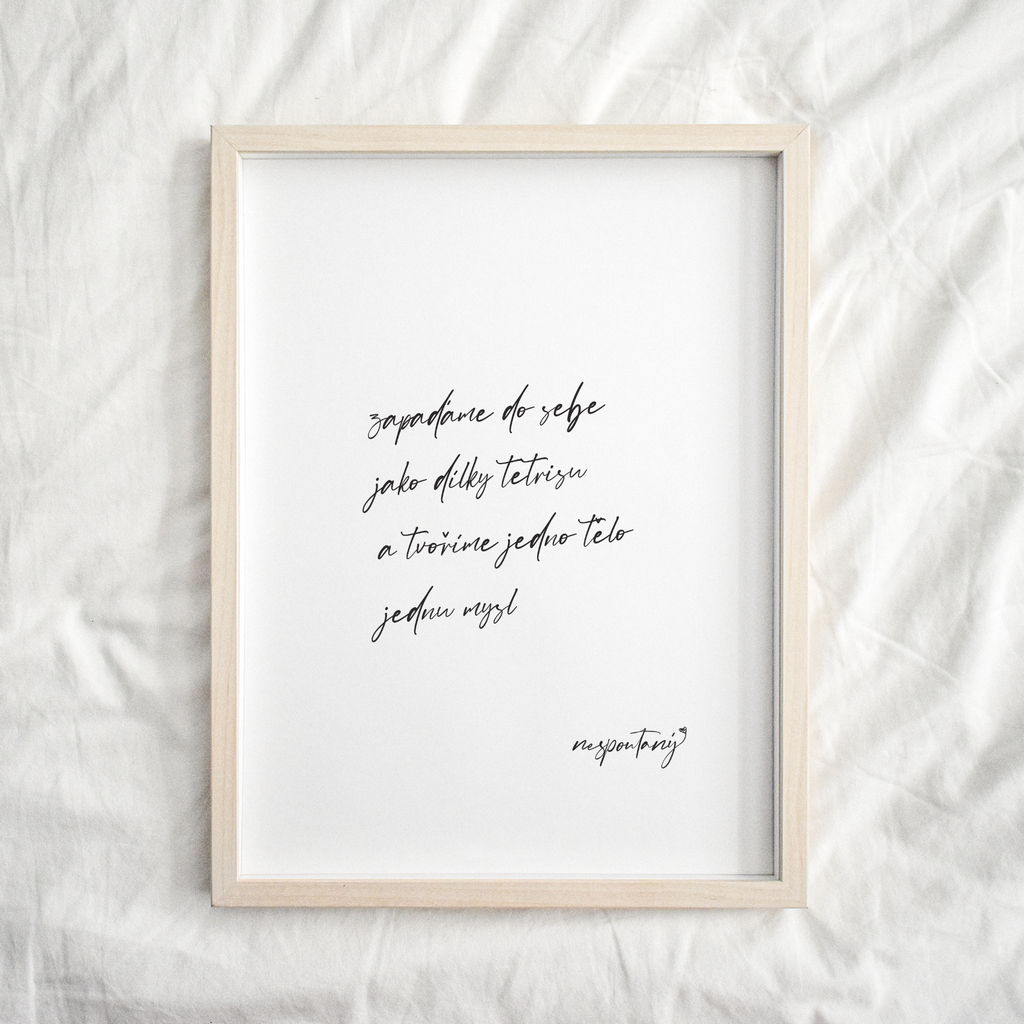 zapadáme do sebe
jako dílky tetrisu
a tvoříme jedno tělo
jednu mysl
nespoutaný